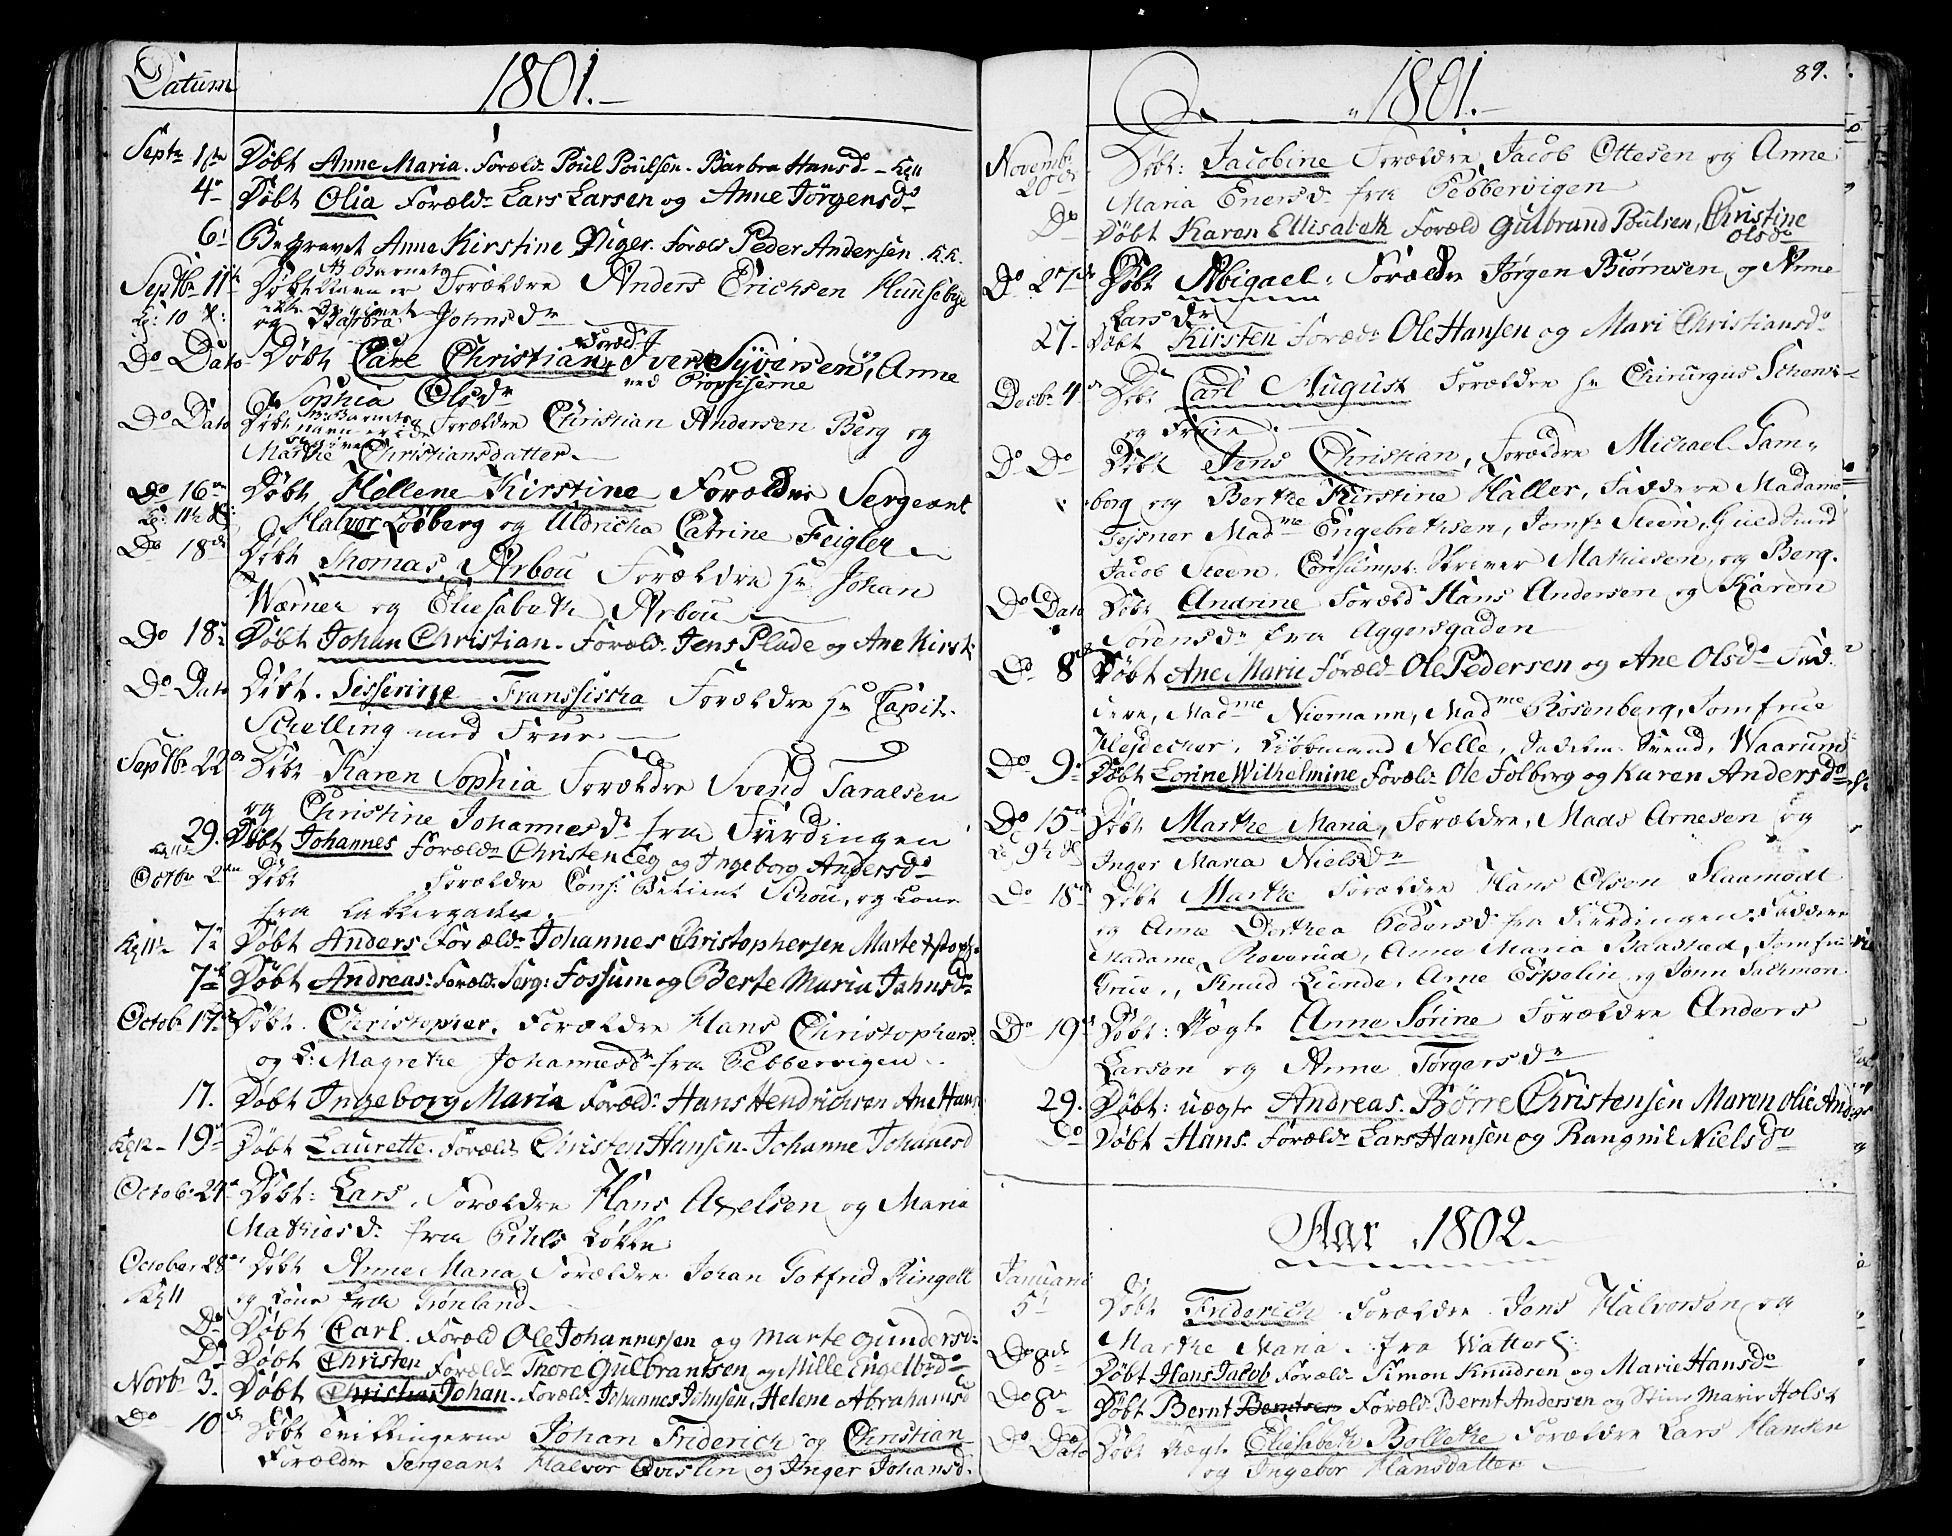 Datum 1801.
Septr 1ste Døbt Anne Maria. Foræld: Poul Poulsen. Barbra Hansd
4de Døbt Olia Foræld: Lars Larsen og Anne Jørgensd
6 Begravet Anne Kirstine Piger. Foræld Peder Andersen. K.K.
Septbr 11te Døbt NB Barnets Forældre Anders Erichsen Hunsebye
Navn er
Kl: 10 sl: ikke
og Barbra Johnsdr
Foræld:
Do Dato Døbt Carl Christian, Iver Syversen, Anne
Sophia Olsdr
Do Dato Døbt NB Barnets Forældre Christian Andersen Berg og
Navn er
Marthe Christiansdatter
Do 16 Døbt Hellene Kirstine Forældre Sergeant
Kl: 11½ sl: Halvor Løbberg og Uldricha Catrine Feigler
Do 18 Døbt Thomas Arbou Forældre Hr Johan
Wærner og Eliesabeth Arbou
Do 18 Døbt Johan Christian. Foræld: Jens Plade og Ane Kirst
Do Dato Døbt. Sisserine Franssiska Forældre Hr Capit.
Schelling med Frue
Septbr 22 Døbt Karen Sophia Forældre Svend Taralsen
og Christine Johannesdr fra Fierdingen
29. Døbt Johannes Foræld: Christen Eeg og Ingeborg Andersd
Octobr 2 Døbt Forældre Cons: Betient Schou, og Kone
fra Lakkergaden.
7 Døbt Anders Foræld: Johannes Christophersen Marte
7 Døbt Andreas. Foræld: Serg: Fossum og Berte Maria Jahnsd
Octob: 17 Døbt. Christopher. Forældre Hans Christophers:
og K: Magrethe Johannesdr fra Pebbervigen
17. Døbt Ingeborg Maria Foræld: Hans Hendrichsen Ane Hans
19 Døbt Laurette. Foræld: Christen Hansen. Johanne Johanesd
Octob: 24 Døbt: Lars, Forældre Hans Axelsen og Maria
Mathiasdr fra Pihls Løkke
October 28 Døbt Anne Maria Forældre Johan Gotfrid Ringelt
Kl 11 og Kone fra Grønland
Do Døbt Carl. Foræld Ole Johannessen og Marte Gundersd:
Do Døbt Christen Foræld: Thore Gulbrantsen og Mille Engelbrd
Norbr 3. Døbt Christian Johan. Foræld: Johannes Johnsen, Helene Abrahamsd
Do 10 Døbt Tvillingerne Johan Friderich og Christian
Forældre Sergeant Halvor Qvislin og Inger Johansd.
1801. 89.
Novembr Døbt: Jacobine Forældre, Jacob Ottesen og Anne
20de Maria Enersd fra Pebbervigen
Do Døbt Karen Ellisabeth Foræld Gulbrand Poulsen, Christine
Olsd
Do 27de Døbt Abigael. Forældre Jørgen Biørnsen og Anne
Larsdr
27. Døbt Kirsten Foræld: Ole Hansen og Mari Christiansd
Decbr 4 Døbt Carl August Forældre Hr Chirurgus
og Frue.
Do Do Døbt Jens Christian, Forældre Michael Gam,
borg og Berthe Kirstine Haller, Faddere Madame
Tejsner Madme Engebrethsen, Jomfr Steen,
Jacob Steen, Consumpt: Skriver Mathiesen, og Berg.
Do Dato Døbt Andrine Foræld Hans Andersen og Karen
Sørensdr fra Aggersgaden
Do 8 Døbt Ane Marie Foræld Ole Pedersen og Ane Olsd Fad:
dere, Madme Niemann, Madme Rosenberg, Jomfrue
Kiøbmand Nelle, Svend, Waarum
Do 9 Døbt Lorine Wilhelmine Foræld: Ole Folberg og Karen Andersd
Do 15 Døbt Marthe Maria, Forældre, Maas Arnesen og
Kl 9½ sl Inger Maria Nielsdr
Do 18 Døbt Marthe Forældre Hans Olsen Slaamodt
og Anne Dorthea Pedersd fra Fierdingen, Faddere
Madame Roverud, Anne Maria Baastad, Jomfrue
Grue, Knud Lunde, Arne Espelin og Jonn Salemon
Do 19 Døbt: Uægte Anne Sørine Forældre Anders
Larsen og Anne Torgersdr
29. Døbt: uægte Andreas. Børre Christensen Maren Olie
Do Døbt Hans. Foræld: Lars Hansen og Rangnil Nielsd
Aar 1802.
Januarii
5te Døbt Friderich Forældre Jens Halvorsen og
Marthe Maria. fra
Do 8de Døbt Hans Jacob Foræld: Simon Knudsen og Marie Hansd
Do 8 Døbt Bernt Berntsen Foræld: Bernt Andersen og Stine Marie Holst
Do Dato Døbt Uægte Eliesebeth Bollethe Forældre Lars Hansen
og Ingebor Hansdatter